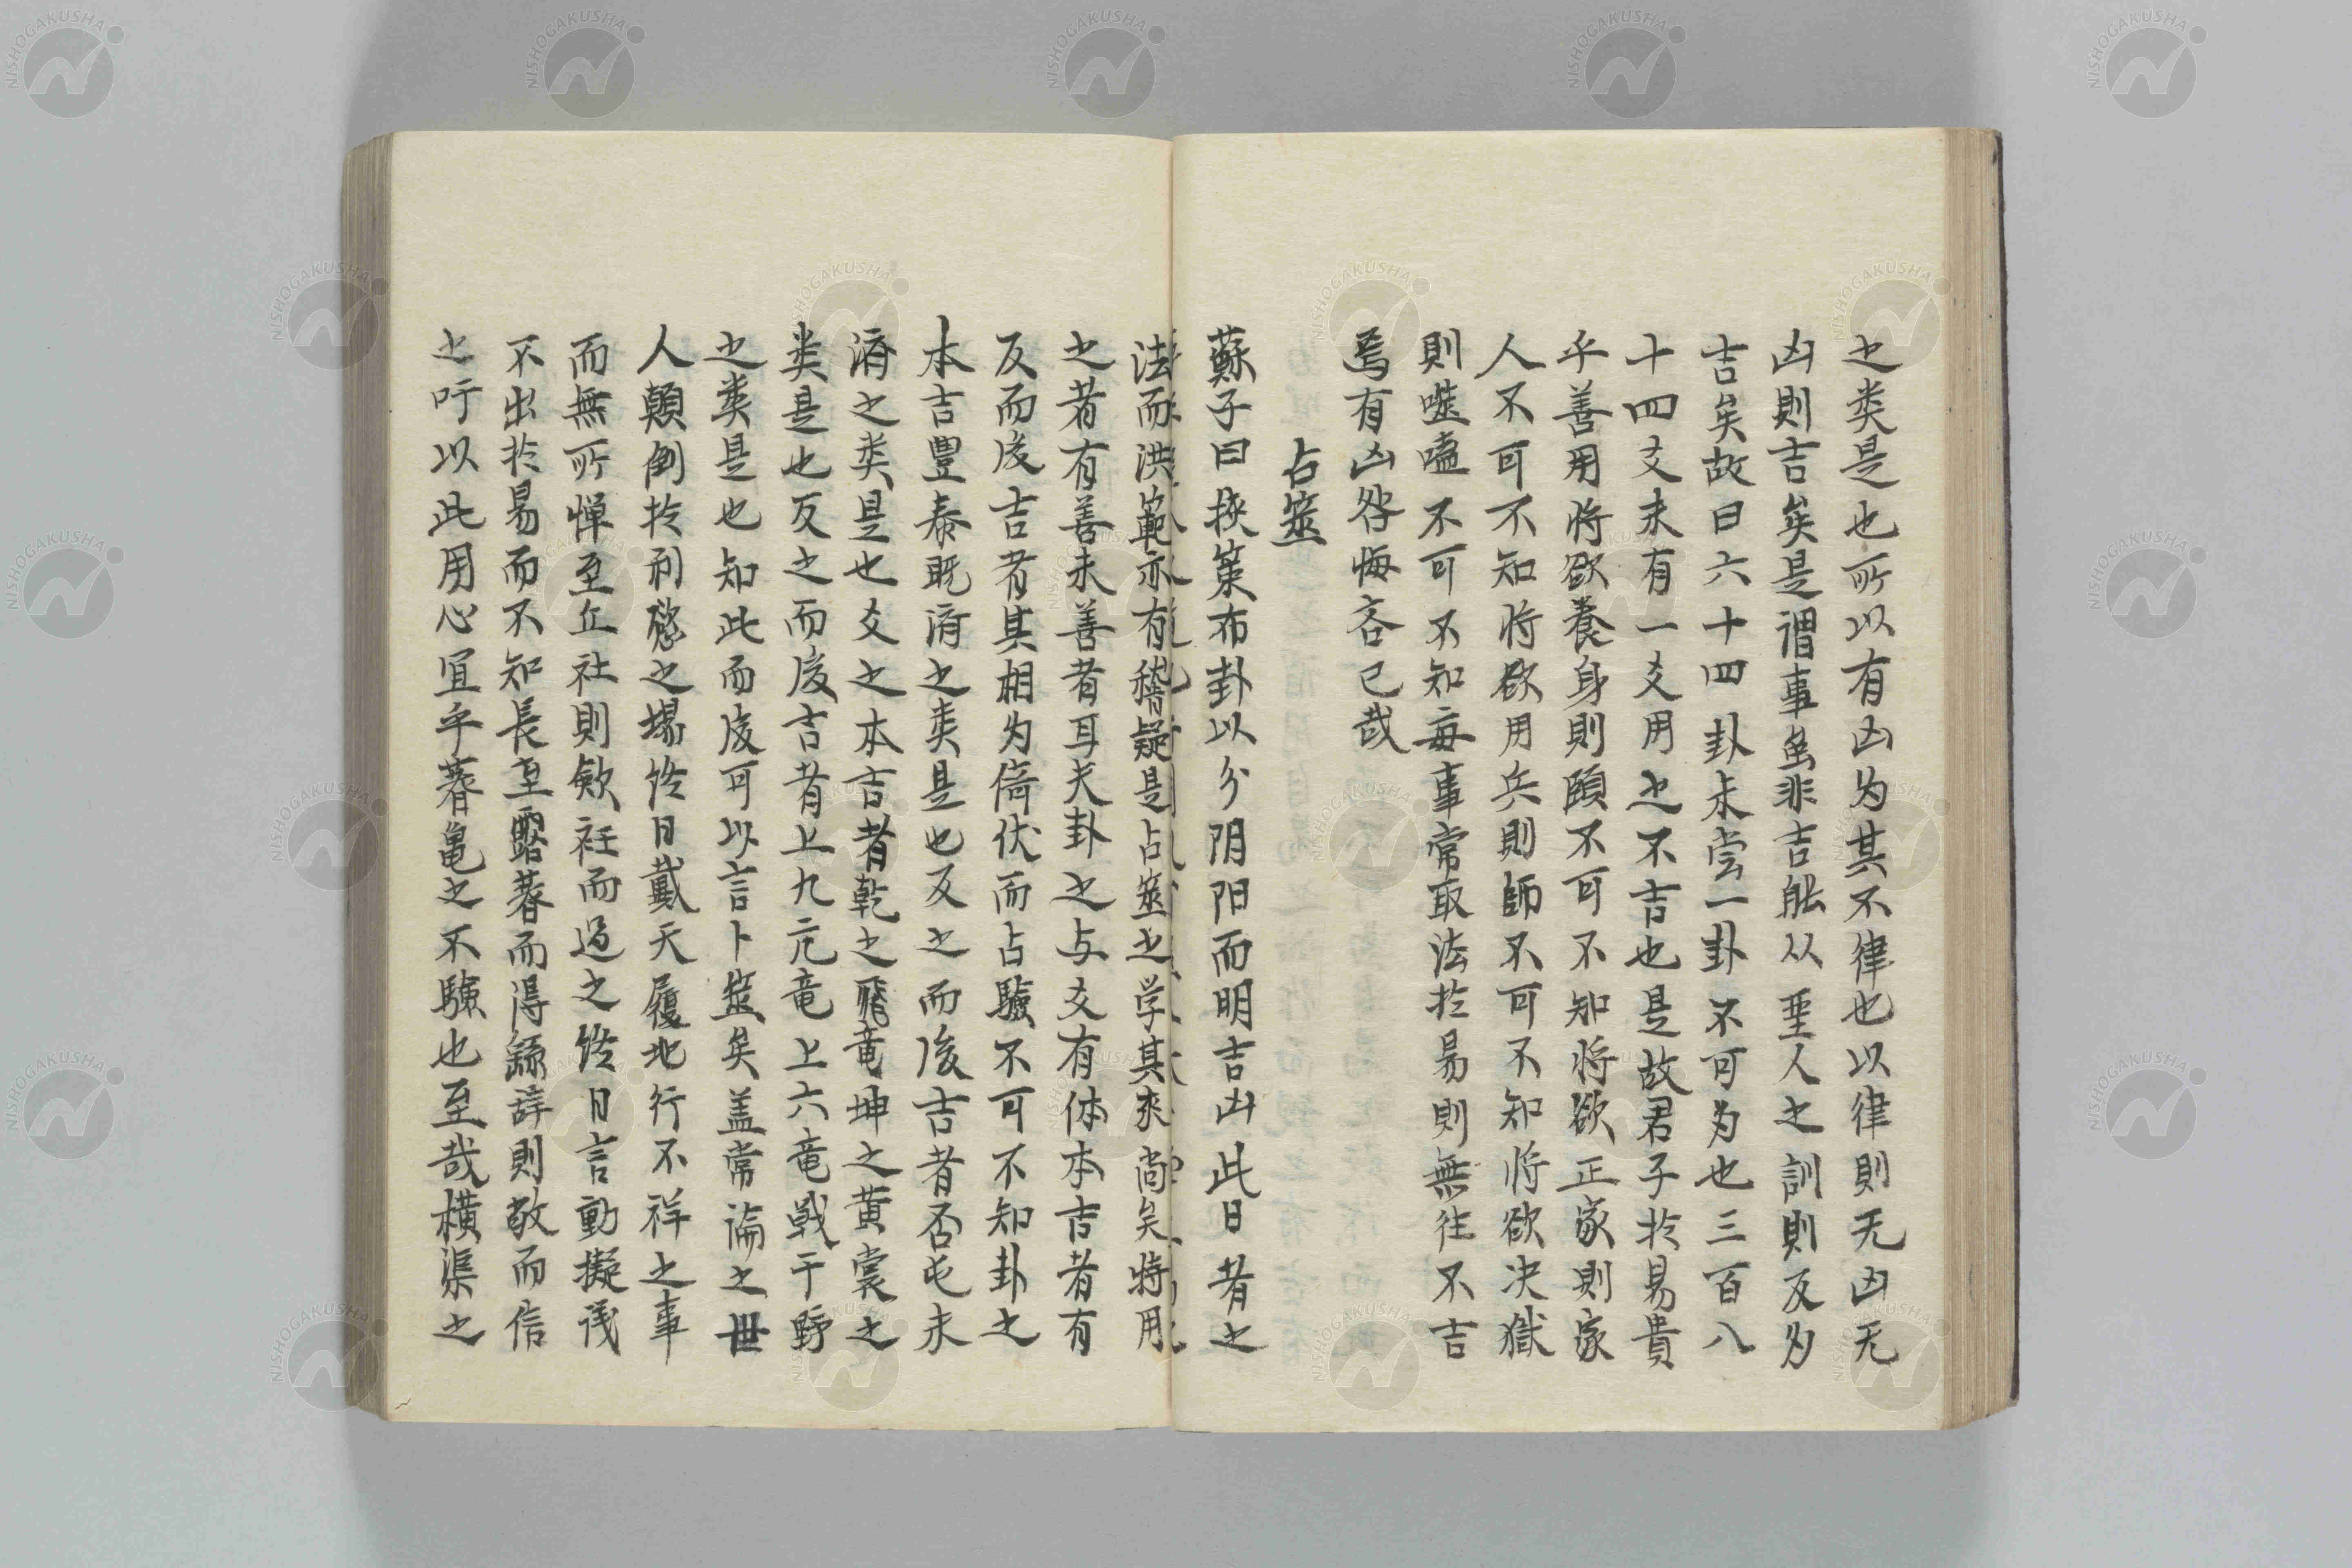 之类是也所以有凶为其不律也以律則无凶无
凶則吉矣是謂事虽非吉能从聖人之訓則反为
吉矣故曰六十四卦未尝一卦不可为也三百八
十四爻未有一爻用之不吉也是故君子於易貴
乎善用将欲養身則頤不可不知将欲正家則家
人不可不知将欲用兵則師不可不知将欲决獄
則噬嗑不可不知每事常取法於易則無往不吉
焉有凶咎悔吝已哉
占筮
蘇子曰揲策布卦以分阴阳而明吉凶此日者之
法而洪範亦有稽疑是占筮之学其來尚矣特用
之者有善未善者耳夫卦之与爻有体本吉者有
反而後吉者其相为倚伏而占驗不可不知卦之
本吉豐泰既済之类是也反之而後吉者否屯未
済之类是也爻之本吉者乾之飛竜坤之黄裳之
类是也反之而後吉者上九亢竜上六竜戦于野
之类是也知此而後可以言卜筮矣盖常論之世
人顛倒於利慾之場終日戴天履地行不祥之事
而無所惮至丘社則歛衽而過之終日言動擬議
不出於易而不知長至露蓍而得繇辞則敬而信
之吁以此用心宜乎蓍亀之不驗也至哉横渠之
NISHOGAKUSHA